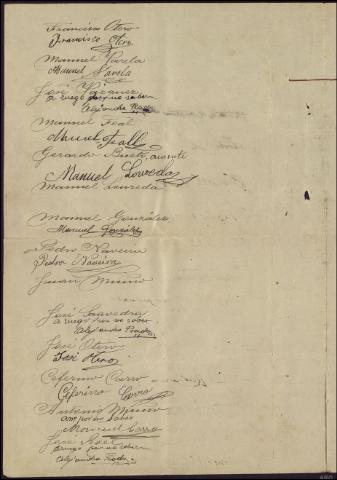 Francisco Otero
Francisco Otero
Manuel Varela
Manuel Varela
José Vazquez
a ruego por no saber
Alejandro
Manuel Feal
Manuel Feal
Gerardo ausente
Manuel Loureda
Manuel Loureda
Manuel González
Manuel González
Pedro Naveira
Pedro Naveira
Juan Muino
José Saavedra
a ruego por no saber
Alejandro
José Otero
José Otero
Ceferino Carro
Ceferino Carro
Antonio Muino
por no saber
Manuel Carro
José
a ruego por no saber
Alejandro